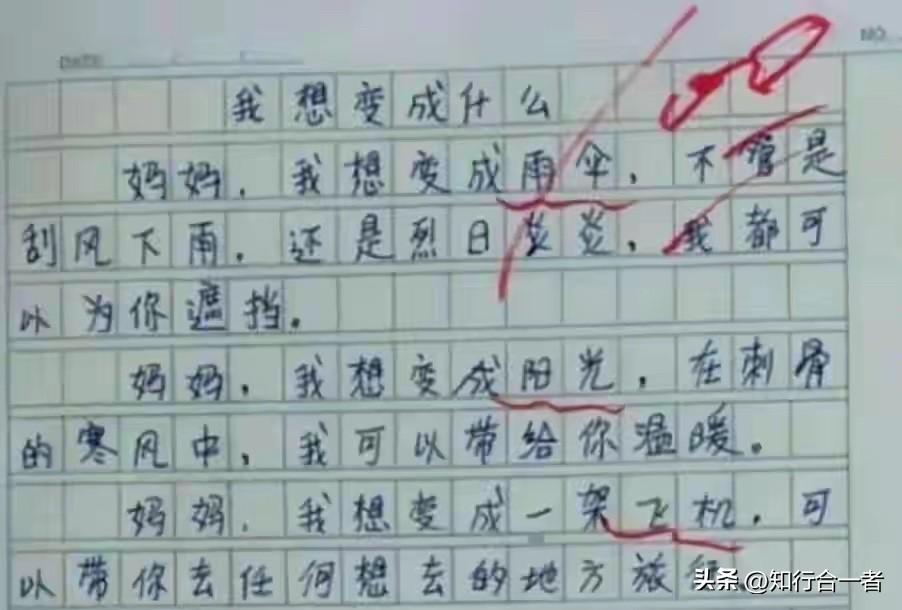 我想变成什么
妈妈，我想变成雨伞，不管是
刮风下雨，还是烈日炎炎，我都可
以为你遮挡。
妈妈，我想变成阳光，在刺骨
的寒风中，我可以带给你温暖。
妈妈，我想变成一架飞机，可
以带你去任何想去的地方旅
头条 @知行合一者